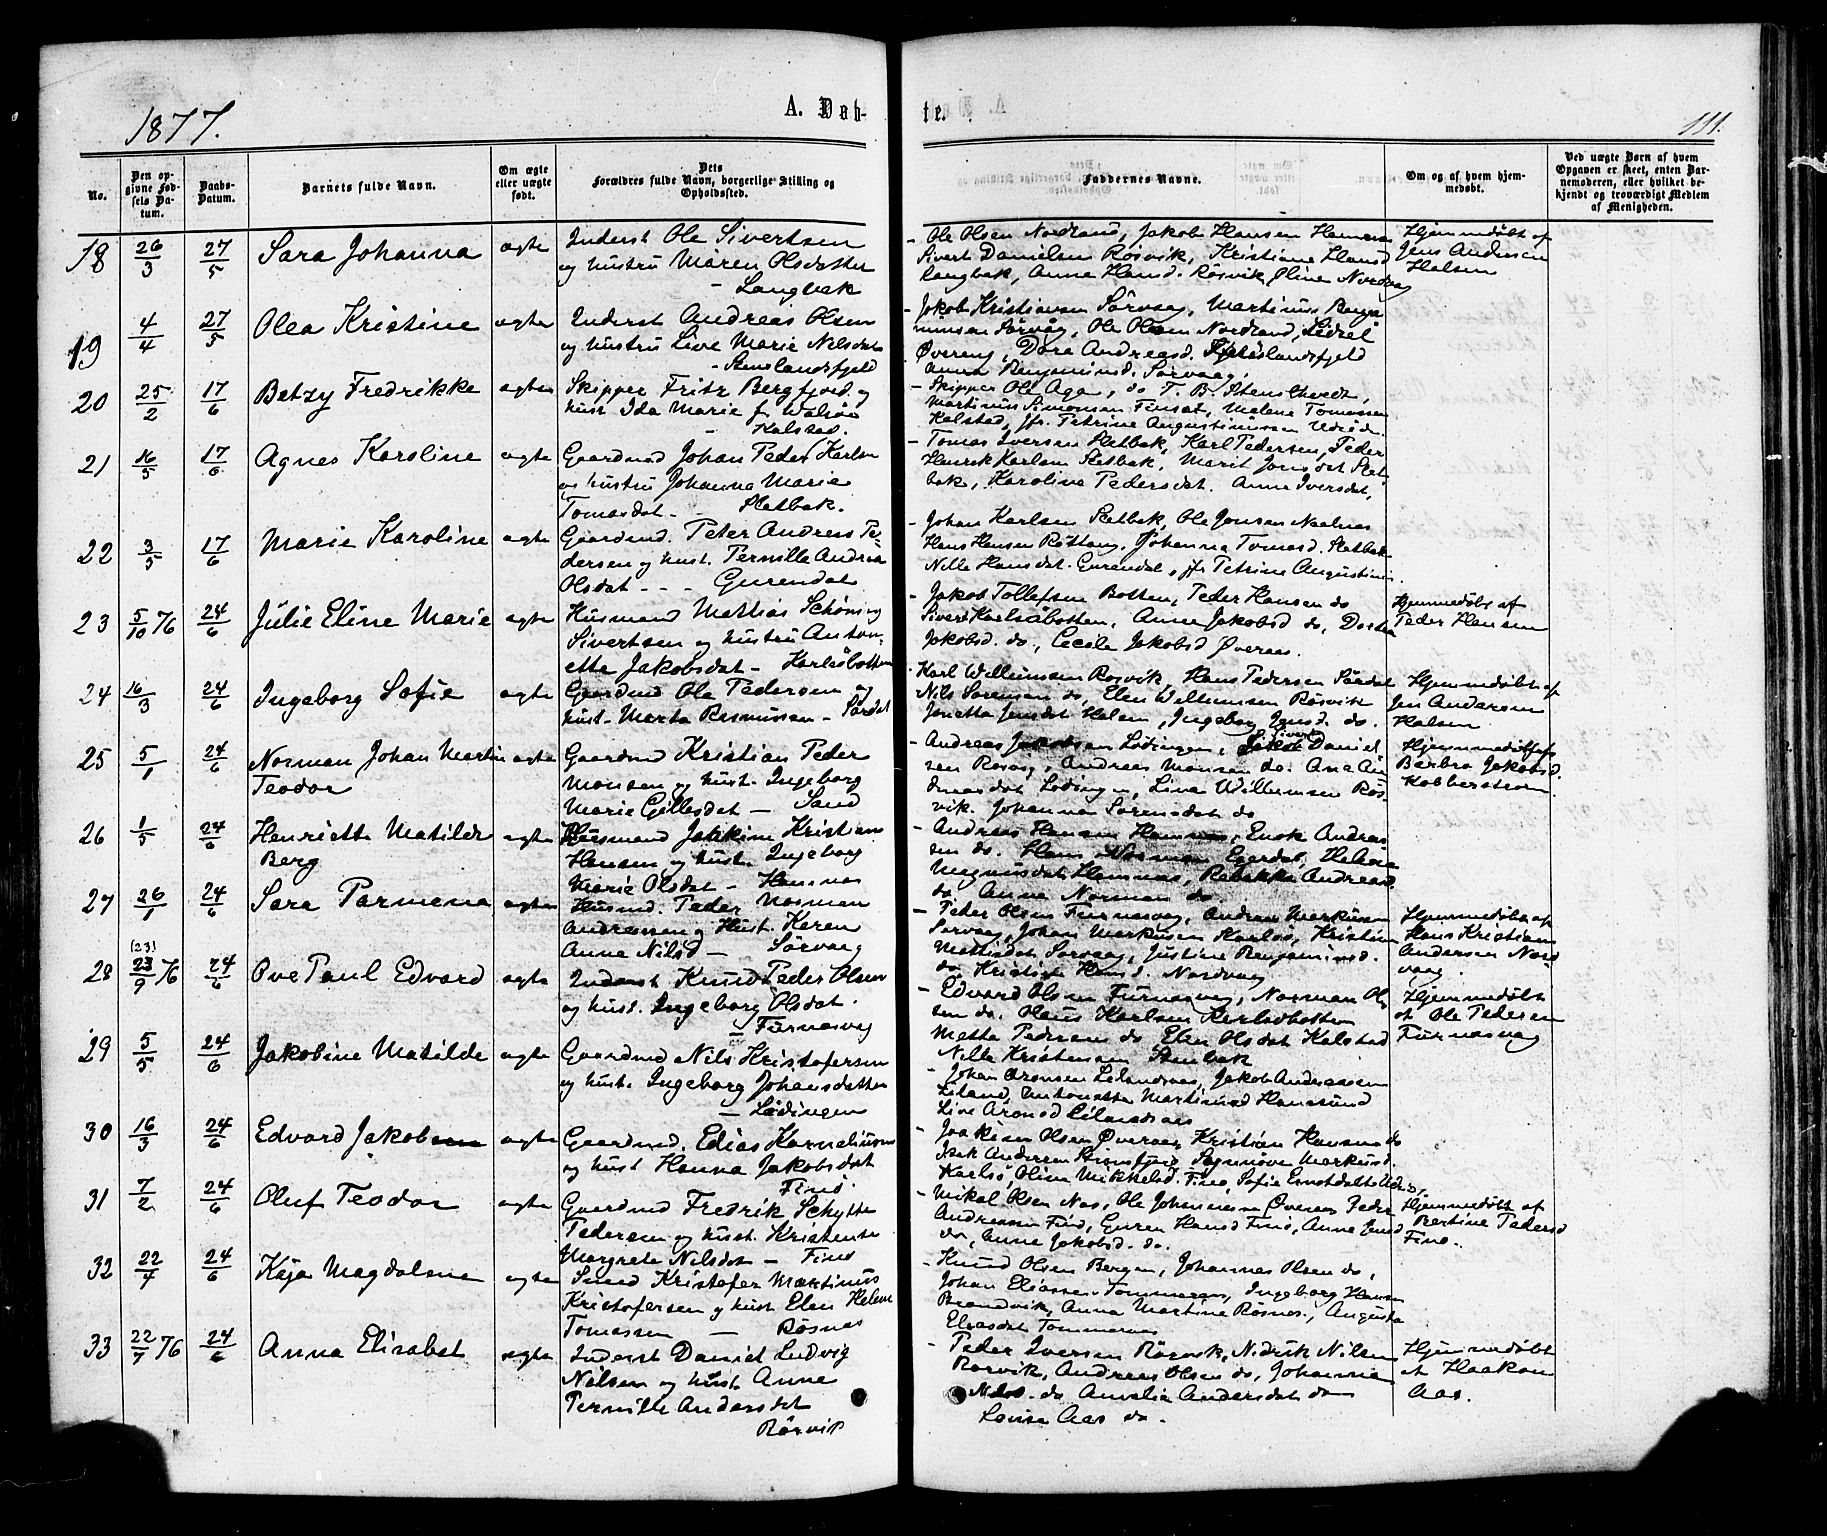 1877.
A. Døb-
te.
111.
No.
Den op-
givne Fød-
sels Da-
tum.
Daabs-
Datum.
Barnets fulde Navn.
Om ægte
eller uægte
født.
Dets
Forældres fulde Navn, borgerlige Stilling og
Opholdssted.
Faddernes Navne.
Om og af hvem hjem-
medøbt.
Ved uægte Børn af hvem
Opgaven er skeet, enten Bar-
nemoderen, eller hvilket be-
kjendt og troværdigt Medlem
af Menigheden.
18 26/3 27/5 Sara Johanna ægte
Inderst Ole Sivertsen
og hustru Maren Olsdatter
- Langbak
- Ole Olsen Nordland, Jakob Hansen Hamnes
Sivert Danielsen Røsvik, Kristiane Hansd
Langbak, Anne Hansd. Røsvik, Oline Nordvag
Hjemmedøbt af
Jens Andersen
Halsen
19 4/4 27/5 Olea Kristine ægte
Inderst Andreas Olsen
og hustru Live Marie Nilsdat
- Stenslandsfjeld
- Jakob Kristiansen Sørvaag, Martinus Benja-
minsen Sørvag, Ole Olsen Nordland,
Øvereng, Dora Andreasd.
Anna Benjamind. Sørvaag.
20 25/2 17/6 Betzy Fredrikke ægte
Skipper Fritz Bergfjord og
hust Ida Marie f. Walsøe
- Kalstad.
- Skipper Ole Aga, do T. B. Stenslhvedt,
Martinus Simonsen Finsæt, Melene Tomassen
Kalstad, jfr. Petrine Augustinusen
21 16/5 17/6 Agnes Karoline ægte
Gaardmd Johan Peder Karlsen
og hustru Johanna Marie
Tomasdat - - Sletbak.
- Tomas Iversen Sletbak, Karl Pedersen, Peder
Henrik Karlsen Sletbak, Marit Jonsdat Slet-
bak, Karoline Pedersdat. Anne Iversdat,
22 3/5 17/6 Marie Karoline ægte
Gaardmd. Peter Andreas Pe-
dersen og hust. Pernille Andrea
Olsdat - - - Gurendal
- Johan Karlsen Sletbak, Ole Jonsen Naalnes
Hans Hansen Røttang, Johanna Tomasd. Sletbak
Nille Hansdat. Gurendal, jfr Petrine Augustinus.
23 5/10 76 24/6 Julie Eline Marie ægte
Husmand Mattias Schøning
Sivertsen og hustru Anton-
ette Jakobsdat - Karlsøbotten
- Jakob Tollefsen Botten, Peder Hansen do
Sivert Karlsøbotten, Anne Jakobsd do, Dorthea
Jakobsd. do, Cecele Jakobsd Øveraas.
Hjemmedøbt af
Peder Hansen
24 16/3 24/6 Ingeborg Sofie ægte
Gaardmd Ole Pedersen og
hust. Marta Rasmussen - Sørdal
- Karl Willumsen Rosvik, Hans Pedersen Sørdal
Nils Sorensen do, Elen Willumsen Røsvik
Jonetta Jensdat Halsen, Ingeborg Jensd. do.
Hjemmedøbt af
Jen Andersen
Halsen
25 5/1 24/6 Norman Johan Martin ægte
Teodor
Gaardmd Kristian Peder
Monsen og hust. Ingeborg
Marie Gillesdat - Sand
- Andreas Jakobsen Lødingen, Sivert Daniel
sen Rosvig, Andreas Monsen do. Ane An
dreasdat Lødingen, Lina Willumsen Røs
vik. Johanna Sorensdat do
Hjemmedøbt af
Barbra Jakobsd.
Kobberstrøm.
26 1/5 24/6 Henriette Matilde ægte
Berg
Husmand Jokkim Kristian
Hansen og hust. Ingeborg
Marie Olsdat - Hamnes
- Andreas Hansen Hamnes, Enok Andrea
sen do. Hans Norman Egerdal, Helena
Magnusdat Hamnas, Rebekka Andreasd
do Anna Norman do.
27 26/1 24/6 Sara Parmena ægte
Husmd. Peder Norman
Andreasen og Hust. Karen
Anna Nilsd - Sørvaag
- Peder Olsen Furnesvag, Andreas Markusen
Sørvaag, Johan Markusen Karlsø, Kristine
Mattisdat Sørvaag, Justine Benjaminsd.
do Kristine Hansd. Nordvaag
Hjemmedøbt af
Hans Kristian
Andersen Nord
vaag.
28 (23) 23/9 76 24/6 Ove Paul Edvard ægte
Inderst Knud Peder Olsen
og hust. Ingeborg Olsdat.
- Furnesvig
- Edvard Olsen Furnesvag, Norman Ol
sen do. Olaus Karlsen Karlsøbotten
Metta Pedersen do Elen Olsdat Kalstad
Nille Kristensen Stenbak
Hjemmedøbt
af Ole Pedersen
Furnesvag
29 5/5 24/6 Jakobine Matilde ægte
Gaardmd Nils Kristofersen
og hust. Ingeborg Johansdatter
- Lødingen
- Johan Aronsen Leilandvas, Jakob Andreassen
Leland, Antonette Martinusd Hamsund
Live Aronsd
30 16/3 24/6 Edvard Jakobsen ægte
Gaardmd. Edias Kornelius
og hust Hanna Jakobsdat
Finø.
- Joakim Olsen Øveraas, Kristian Hansen do
Isak Andersen Stefjord, Markusd.
Karlsø, Oline Mikkelsd. Finø, Sofie
31 7/2 24/6 Oluf Teodor ægte
Gaardmd Fredrik Schytte
Pedersen og hust. Kristense
Margrete Nilsdat - Finø
- Mikal Olsen Nes, Ole Johannesen Øveraas Peder
Andreassen Finø, Guren Hansd Finø, Anne Jensd
do, Anne Jakobsd. do.
Hjemmedøbt af
Bertine Pedersd
Finø.
32 22/4 24/6 Kaja Magdalene ægte
Smed Kristofer Martinus
Kristofersen og hust Elen Helene
Tomassen - Røsnes
- Knud Olsen Bergen, Johannes Olsen do,
Johan Eliassen Tommernes, Ingeborg Hansen
Brandvik, Anna Martine Røsnes, Augusta
Eliasdat Tommernes
33 22/7 76 24/6 Anna Elisabet ægte
Inderst Daniel Ludvig
Nilsen og hust Anne
Pernille Andersdat
Rørvik
- Peder Iversen Rørvik, Nidrik Nilsen
Rørvik, Andreas Olsen do, Johanna
Nilsd. do Amalia Andersdat do
Lovise Aas do.
Hjemmedøbt
af Haakon
Aas.